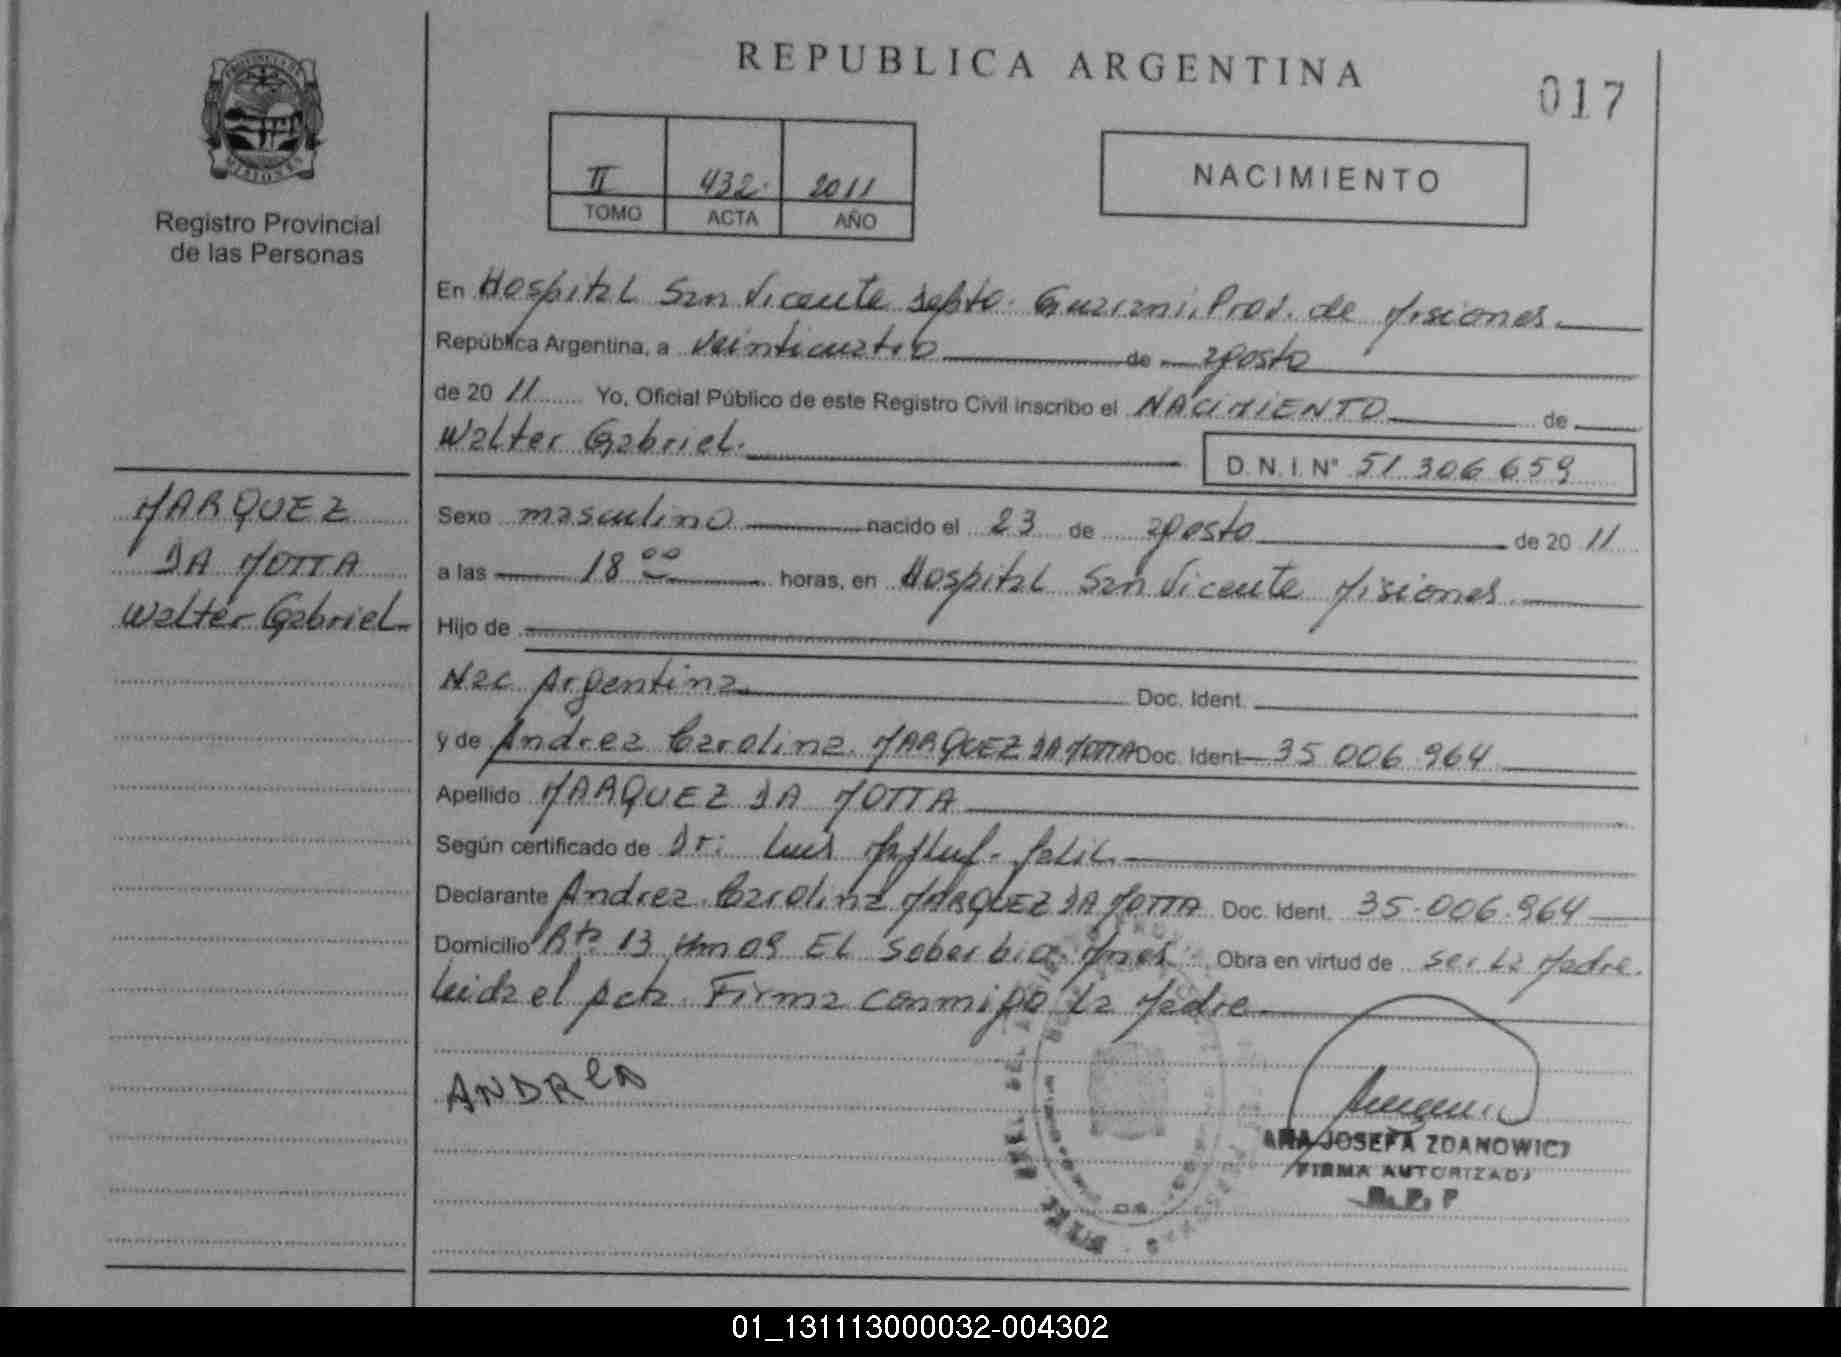 PROVINCIA DE
MISIONES
Registro Provincial
de las Personas
REPUBLICA ARGENTINA
017
II 432 2011
TOMO ACTA AÑO
NACIMIENTO
En Hospital San Vicente Depto. Guarani, Prov. de Misiones
República Argentina, a veinticuatro de agosto
de 20 11 Yo, Oficial Público de este Registro Civil inscribo el NACIMIENTO de
Walter Gabriel.
D.N.I. Nº 51.306.659
MARQUEZ
DA MOTTA
Walter Gabriel
Sexo masculino nacido el 23 de agosto de 20 11
a las 18 00 horas, en Hospital San Vicente Misiones
Hijo de
Nac Argentina Doc. Ident.
y de Andrea Carolina MARQUEZ DA MOTTA Doc. Ident 35.006.964
Apellido MARQUEZ DA MOTTA
Según certificado de Dr: Luis
Declarante Andrea Carolina MARQUEZ DA MOTTA Doc. Ident. 35.006.964
Domicilio Rta 13 Km 09 EL Soberbio Mnes. Obra en virtud de ser La Madre.
Leida el Acta Firma conmigo La Madre
ANDREA
ANA JOSEFA ZDANOWICZ
FIRMA AUTORIZADA
R.P.P
01_131113000032-004302